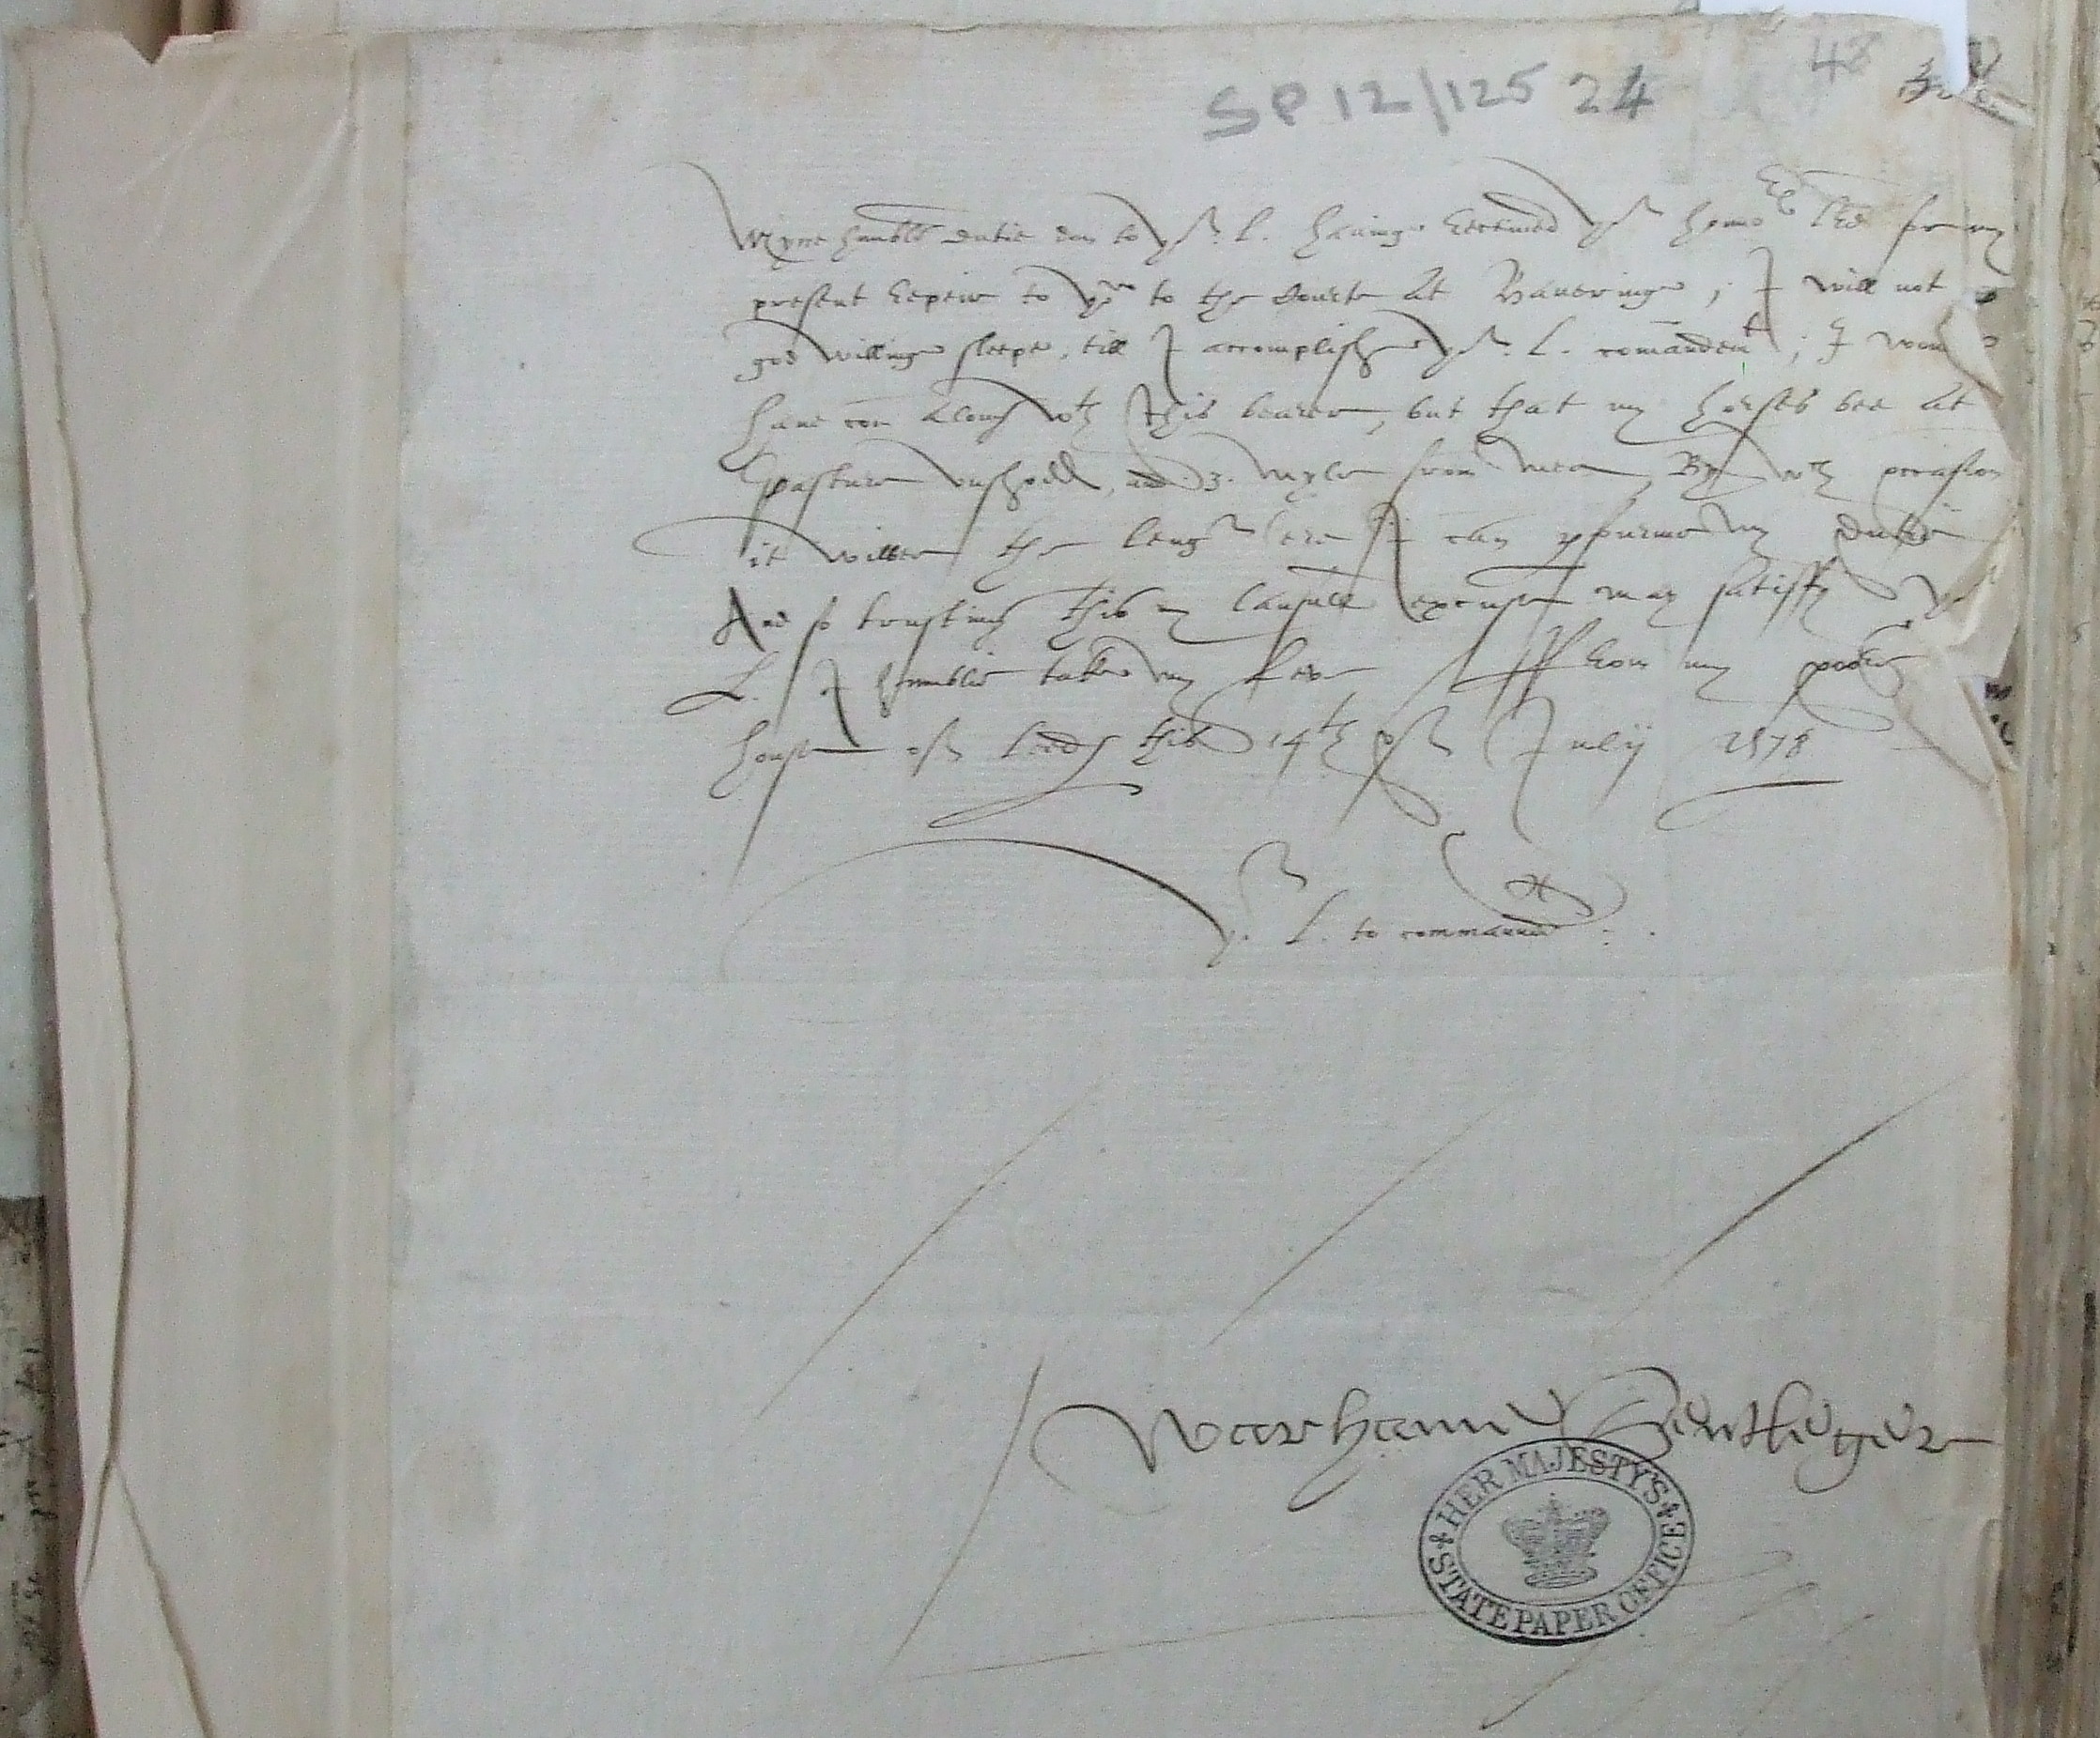 SP 12/125 24
48
Myne humble dutie don to yor. L. having received yor hono:ble lres for my
present repeir to you to the Courte at Haveringe ; I will not
god willinge sleepe, till I accomplishe yor. L. comandemt ; I would
have com alonge wth this bearer, but that my horses bee at
pasture unshodd, and .3. myle from mee, By wch occasion
it wilbee the lenger ere I can pfourme my dutie
And so trusting this my laufull excuse may satisfy yor
L. I humblie take my leve, ffrom my poore
house of Leedes this 14th of July 1578
yor. L. to commaund
Warhame Sentleger
HER MAJESTY'S STATE PAPER OFFICE